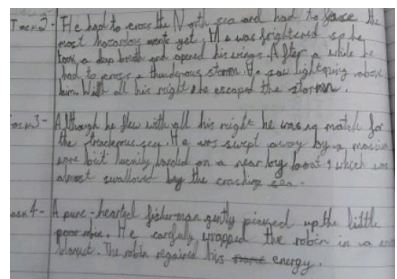 He had to cross the North sea and had to face the
most hazardous yet. He was frightened so he
took a deep breath and opened his wings. After a while he
had to cross a thunderous storm. He saw lightning
him. With all his might he escaped the storm.
Although he flew with all his might he was no match for
the thunderous sea. He was swept away by a massive
but luckily landed on a near by boat which was
almost swallowed by the crashing sea.
A pure-hearted fisherman gently picked up the little
poor robin. He carefully wrapped the robin in a
blanket. The robin regained his energy.